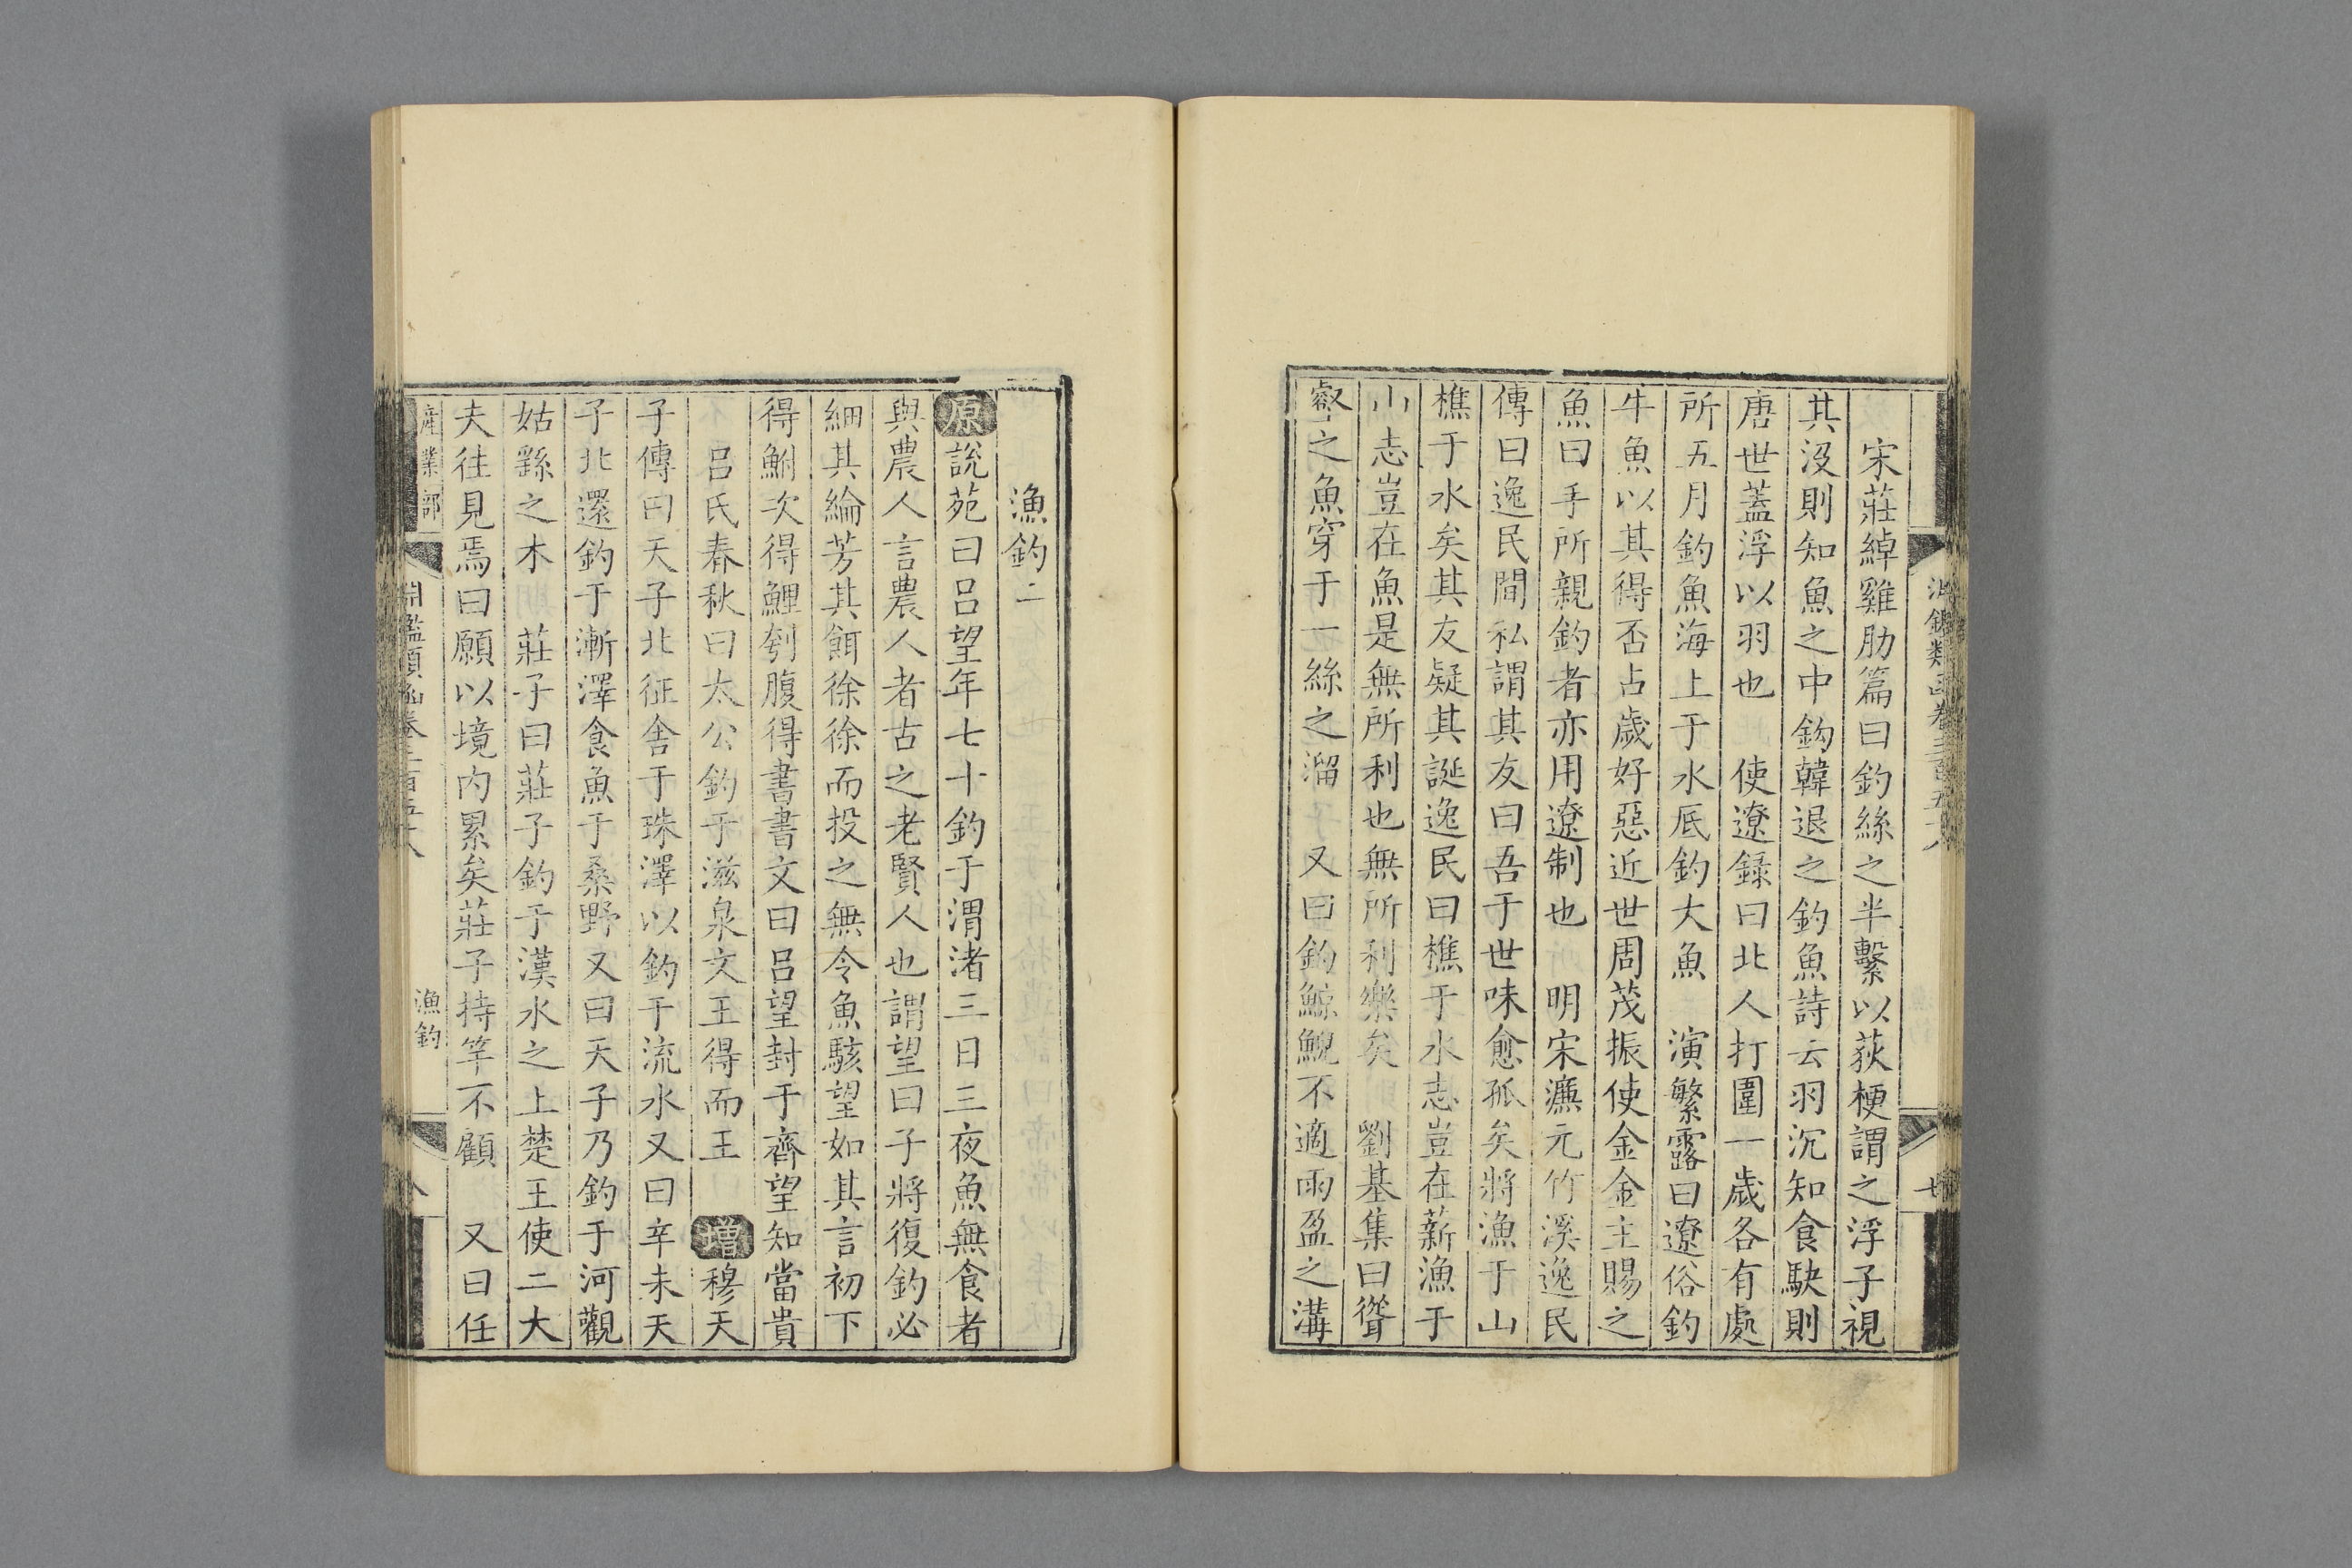 淵鑑類函卷三百五十八
七
宋莊綽雞肋篇曰釣絲之半繫以荻梗謂之浮子視
其没則知魚之中鈎韓退之釣魚詩云羽沉知食駃則
唐世蓋浮以羽也　使遼録曰北人打圍一歲各有處
所五月釣魚海上于水底釣大魚　演繁露曰遼俗釣
牛魚以其得否占歲好惡近世周茂振使金金主賜之
魚曰手所親釣者亦用遼制也　明宋濂元竹溪逸民
傳曰逸民間私謂其友曰吾于世味愈孤矣將漁于山
樵于水矣其友疑其誕逸民曰樵于水志豈在薪漁于
山志豈在魚是無所利也無所利樂矣　劉基集曰聳
壑之魚穿于一絲之溜　又曰釣鯨鯢不適雨盈之溝
漁釣二
原説苑曰吕望年七十釣于渭渚三日三夜魚無食者
與農人言農人者古之老賢人也謂望曰子將復釣必
細其綸芳其餌徐徐而投之無令魚駭望如其言初下
得鮒次得鯉刳腹得書書文曰吕望封于齊望知當貴
吕氏春秋曰太公釣于滋泉文王得而王　增穆天
子傳曰天子北征舍于珠澤以釣于流水又曰辛未天
子北還釣于漸澤食魚于桑野又曰天子乃釣于河觀
姑繇之木　莊子曰莊子釣于漢水之上楚王使二大
夫往見焉曰願以境内累矣莊子持竿不顧　又曰任
産業部
淵鑑類函卷三百五十八
漁釣
八